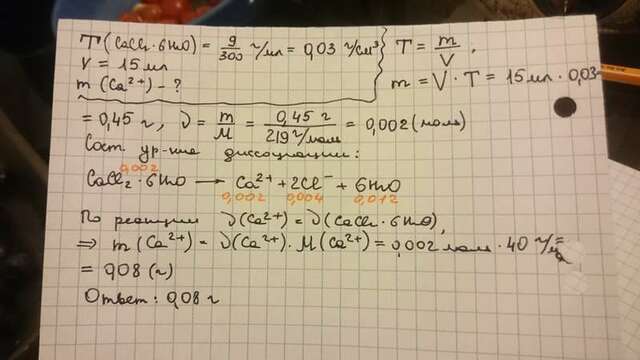 T(CaCl₂·6H₂O) = 9/300 г/мл = 0,03 г/см³
V = 15 мл
m(Ca²⁺) - ?
T = m/V,
m = V·T = 15 мл · 0,03
= 0,45 г, ν = m/M = 0,45 г/219 г/моль = 0,002 (моль)
Сост. ур-ние диссоциации:
0,002
CaCl₂·6H₂O → Ca²⁺ + 2Cl⁻ + 6H₂O
0,002 0,004 0,012
По реакции ν(Ca²⁺) = ν(CaCl₂·6H₂O),
⇒ m(Ca²⁺) = ν(Ca²⁺)·M(Ca²⁺) = 0,002 моль · 40 г/моль =
= 0,08 (г)
Ответ: 0,08 г